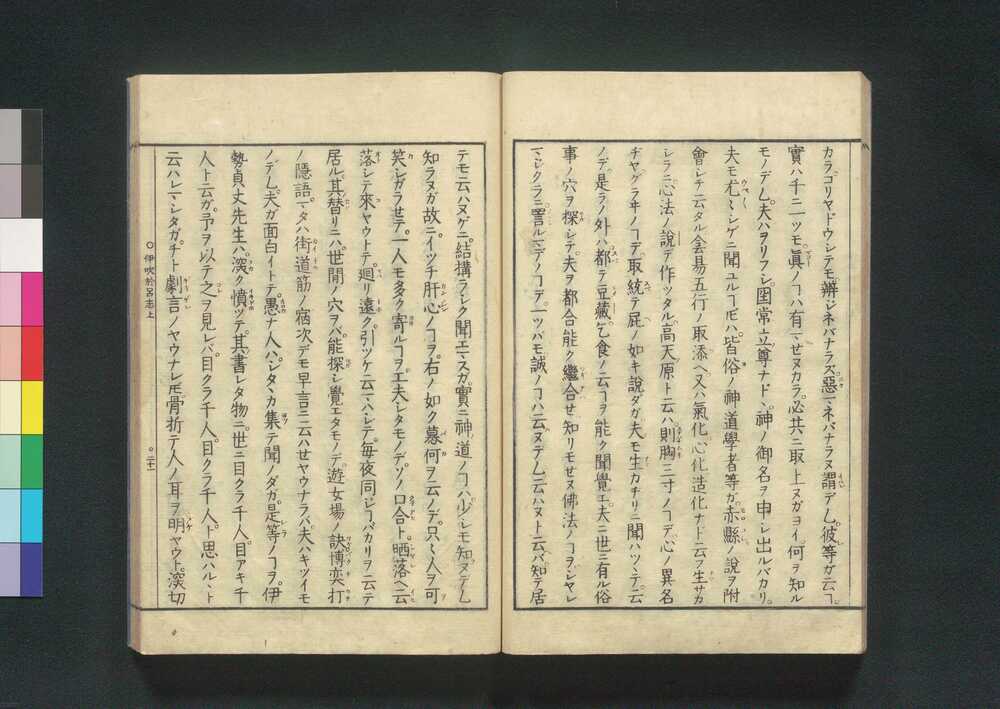 カラゴリマドウシテモ辨ジネバナラズ惡マネバナラヌ謂デム彼等ガ云ヿ
實ハ千ニ一ツモ眞ノヿハ有マせヌカラ必共ニ取上ヌガヨイ何ヲ知ル
モノデム夫ハヲリフシ國常立尊ナド丶神ノ御名ヲ申シ出ルバカリ
夫モ尤〱シゲニ聞ユルヿ𪜈ハ皆俗ノ神道學者等ガ赤縣ノ說ヲ附
會シテ云タル陰昜五行ノ取添ヘ又ハ氣化心化造化ナド云ヲ生サカ
シラニ心法ノ說ニ作ッタル高天原ト云ハ則胸三寸ノヿデ心ノ異名
ヂヤグラヰノヿデ取統テ屁ノ如キ說ダガ夫モ生カヂリニ聞ハツヽテ云
ノデ是ラノ外ハ都テ豆藏乞食ノ云ヿヲ能ク聞覺エ夫ニ世ニ有ル俗
事ノ穴ヲ探シテ夫ヲ都合能ク繼合せ知リモせヌ佛法ノヿヲシヤレ
マジクラニ詈ルマデノヿデ一ツバモ誠ノヿハ云ヌデム云ハヌト云バ知テ居
テモ云ハヌゲニ結構ラシク聞エマスガ實ニ神道ノヿハ少シモ知ヌデム
知ラヌガ故ニイッチ肝心ノヿヲ右ノ如ク慕何ヲ云ノデ只〱人ヲ可
笑シガラせテ一人モ多ク寄ルヿヲ工夫シタモノデソノ口合ト晒落ヘ云
落シテ來ヤウトテ廻リ遠ク引ツケ云マハシテ每夜同ジヿバカリヲ云テ
居ル其替リニハ世間ノ穴ヲバ能探シ覺エタモノデ遊女場ノ訣博奕打
ノ隱語マタハ街道筋ノ宿次デモ早言ニ云ハせヤウナラバ夫ハキツイモ
ノデム夫ガ面白イトテ愚ナ人ハシタヽカ集テ聞ノダガ是等ノヿヲ伊
勢貞丈先生ハ深ク憤ツテ其書レタ物ニ世ニ目クラ千人目アキ千
人ト云ガ予ヲ以テ之ヲ見レバ目クラ千人目クラ千人ト思ハルヽト
云ハレマシタガチト劇言ノヤウナレ𪜈骨折テ人ノ耳ヲ明ヤウト深切
○伊吹於呂志上
○二十一